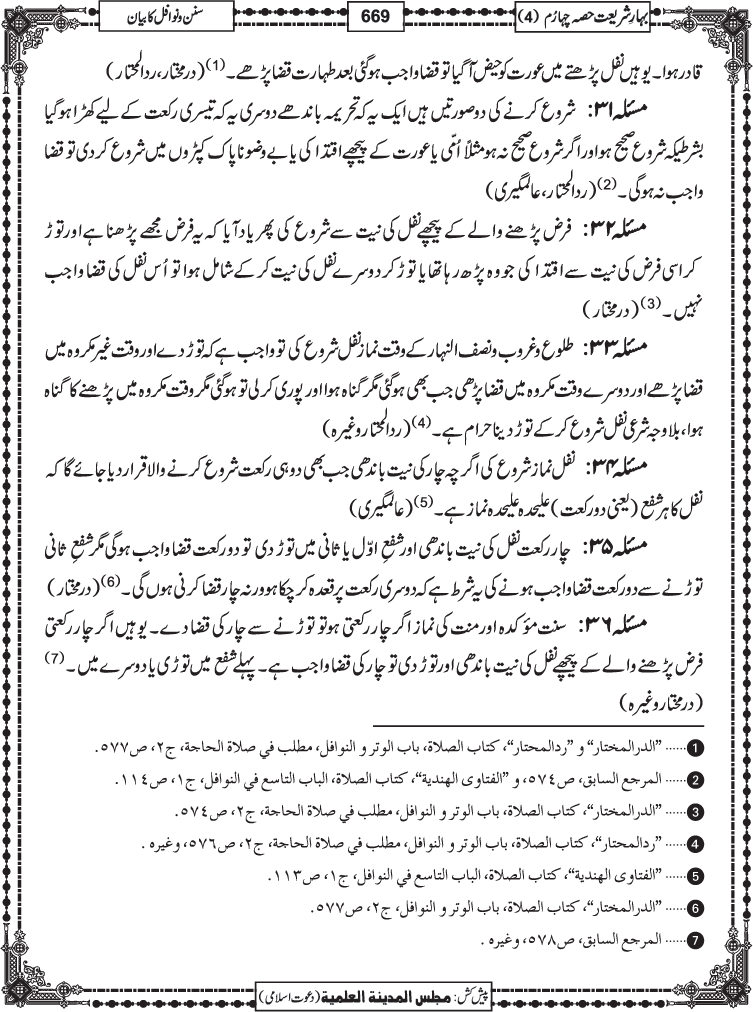 بہارِ شریعت حصہ چہارم (4)
669
سنن و نوافل کا بیان
قادر ہوا۔ یوہیں نفل پڑھتے میں عورت کو حیض آگیا تو قضا واجب ہوگئی بعد طہارت قضا پڑھے۔(1) (درمختار، ردالمحتار)
مسئلہ ۳۱: شروع کرنے کی دو صورتیں ہیں ایک یہ کہ تحریمہ باندھے دوسری یہ کہ تیسری رکعت کے لیے کھڑا ہوگیا
بشرطیکہ شروع صحیح ہو اور اگر شروع صحیح نہ ہو مثلاً اُمّی یا عورت کے پیچھے اقتدا کی یا بے وضو ناپاک کپڑوں میں شروع کر دی تو قضا
واجب نہ ہوگی۔(2) (ردالمحتار، عالمگیری)
مسئلہ ۳۲: فرض پڑھنے والے کے پیچھے نفل کی نیت سے شروع کی پھر یاد آیا کہ یہ فرض مجھے پڑھنا ہے اور توڑ
کر اسی فرض کی نیت سے اقتدا کی جو وہ پڑھ رہا تھا یا توڑ کر دوسرے نفل کی نیت کر کے شامل ہوا تو اُس نفل کی قضا واجب
نہیں۔(3) (درمختار)
مسئلہ ۳۳: طلوع و غروب و نصف النہار کے وقت نماز نفل شروع کی تو واجب ہے کہ توڑ دے اور وقت غیر مکروہ میں
قضا پڑھے اور دوسرے وقت مکروہ میں قضا پڑھی جب بھی ہوگئی مگر گناہ ہوا اور پوری کر لی تو ہوگئی مگر وقت مکروہ میں پڑھنے کا گناہ
ہوا، بلاوجہ شرعی نفل شروع کر کے توڑ دینا حرام ہے۔(4) (ردالمحتار وغیرہ)
مسئلہ ۳۴: نفل نماز شروع کی اگرچہ چار کی نیت باندھی جب بھی دو ہی رکعت شروع کرنے والا قرار دیا جائے گا کہ
نفل کا ہر شفع (یعنی دو رکعت) علیحدہ علیحدہ نماز ہے۔(5) (عالمگیری)
مسئلہ ۳۵: چار رکعت نفل کی نیت باندھی اور شفعِ اوّل یا ثانی میں توڑ دی تو دو رکعت قضا واجب ہوگی مگر شفعِ ثانی
توڑنے سے دو رکعت قضا واجب ہونے کی یہ شرط ہے کہ دوسری رکعت پر قعدہ کر چکا ہو ورنہ چار قضا کرنی ہوں گی۔(6) (درمختار)
مسئلہ ۳۶: سنت مؤکدہ اور منت کی نماز اگر چار رکعتی ہو تو توڑنے سے چار کی قضا دے۔ یوہیں اگر چار رکعتی
فرض پڑھنے والے کے پیچھے نفل کی نیت باندھی اور توڑ دی تو چار کی قضا واجب ہے۔ پہلے شفع میں توڑی یا دوسرے میں۔(7)
(درمختار وغیرہ)
1 ...... ”الدرالمختار“ و ”ردالمحتار“، کتاب الصلاة، باب الوتر و النوافل، مطلب في صلاة الحاجة، ج٢، ص٥٧٧.
2 ...... المرجع السابق، ص٥٧٤، و ”الفتاوی الھندیة“، کتاب الصلاة، الباب التاسع في النوافل، ج١، ص١١٤.
3 ...... ”الدرالمختار“، کتاب الصلاة، باب الوتر و النوافل، مطلب في صلاة الحاجة، ج٢، ص٥٧٤.
4 ...... ”ردالمحتار“، کتاب الصلاة، باب الوتر و النوافل، مطلب في صلاة الحاجة، ج٢، ص٥٧٦، وغیرہ .
5 ...... ”الفتاوی الھندیة“، کتاب الصلاة، الباب التاسع في النوافل، ج١، ص١١٣.
6 ...... ”الدرالمختار“، کتاب الصلاة، باب الوتر و النوافل، ج٢، ص٥٧٧.
7 ...... المرجع السابق، ص٥٧٨، وغیرہ .
پیش کش: مجلس المدینة العلمیة (دعوت اسلامی)